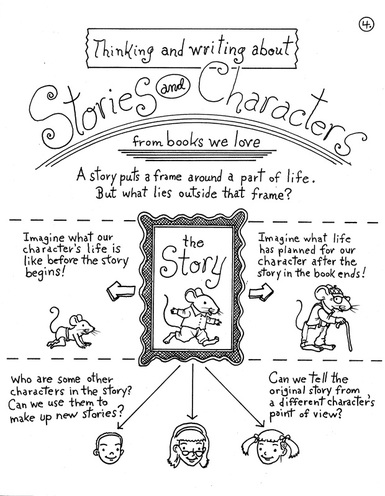 4.
Thinking and writing about
Stories and Characters
from books we love
A story puts a frame around a part of life.
But what lies outside that frame?
Imagine what our
character's life is
like before the story
begins!
the
Story
Imagine what life
has planned for our
character after the
story in the book ends!
Who are some other
characters in the story?
Can we use them to
make up new stories?
Can we tell the
original story from
a different character's
point of view?